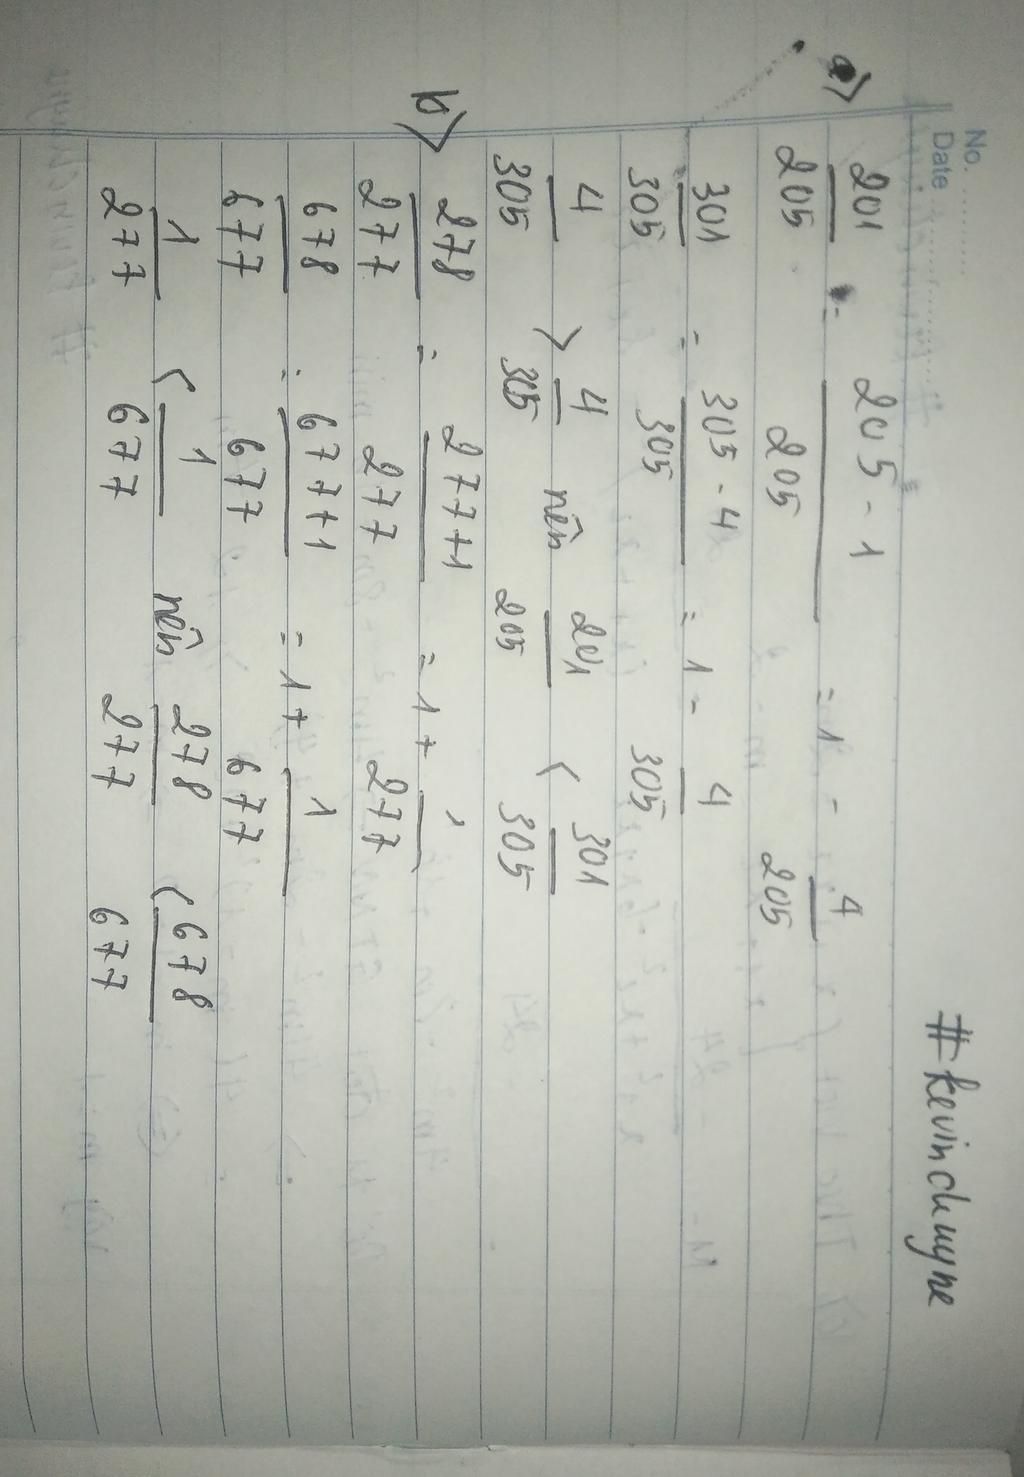 No.
Date
#kevinchuyne
a) 201/205 = 205 - 1/205 = 1 - 4/205
301/305 = 305 - 4/305 = 1 - 4/305
4/305 > 4/305 nên 201/205 < 301/305
b) 278/277 = 277+1/277 = 1 + 1/277
678/677 = 677+1/677 = 1 + 1/677
1/277 < 1/677 nên 278/277 < 678/677